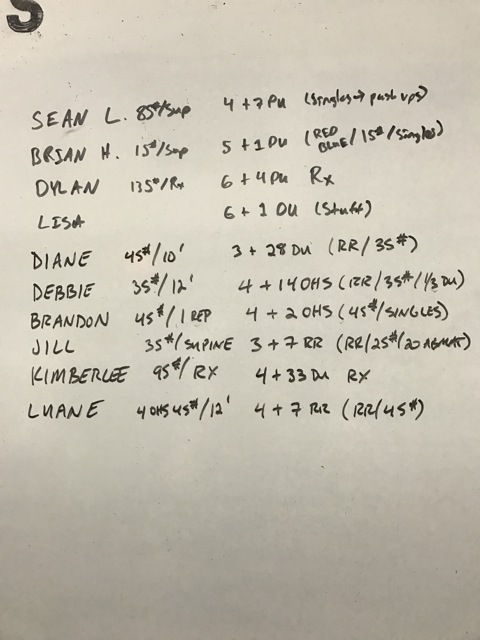 S
SEAN L. 85#/Sup 4 + 7 PU (Singles → push ups)
BRIAN H. 15#/Sup 5 + 1 DU (RED BLUE/15#/Singles)
DYLAN 135#/Rx 6 + 4 PU Rx
LISA 6 + 1 DU (Stuff)
DIANE 45#/10' 3 + 28 DU (RR/35#)
DEBBIE 35#/12' 4 + 14 OHS (RR/35#/1/3 DU)
BRANDON 45#/1 REP 4 + 2 OHS (45#/SINGLES)
JILL 35#/SUPINE 3 + 7 RR (RR/25#/20 ABMAT)
KIMBERLEE 95#/RX 4 + 33 DU RX
LUANE 4 OHS 45#/12' 4 + 7 RR (RR/45#)